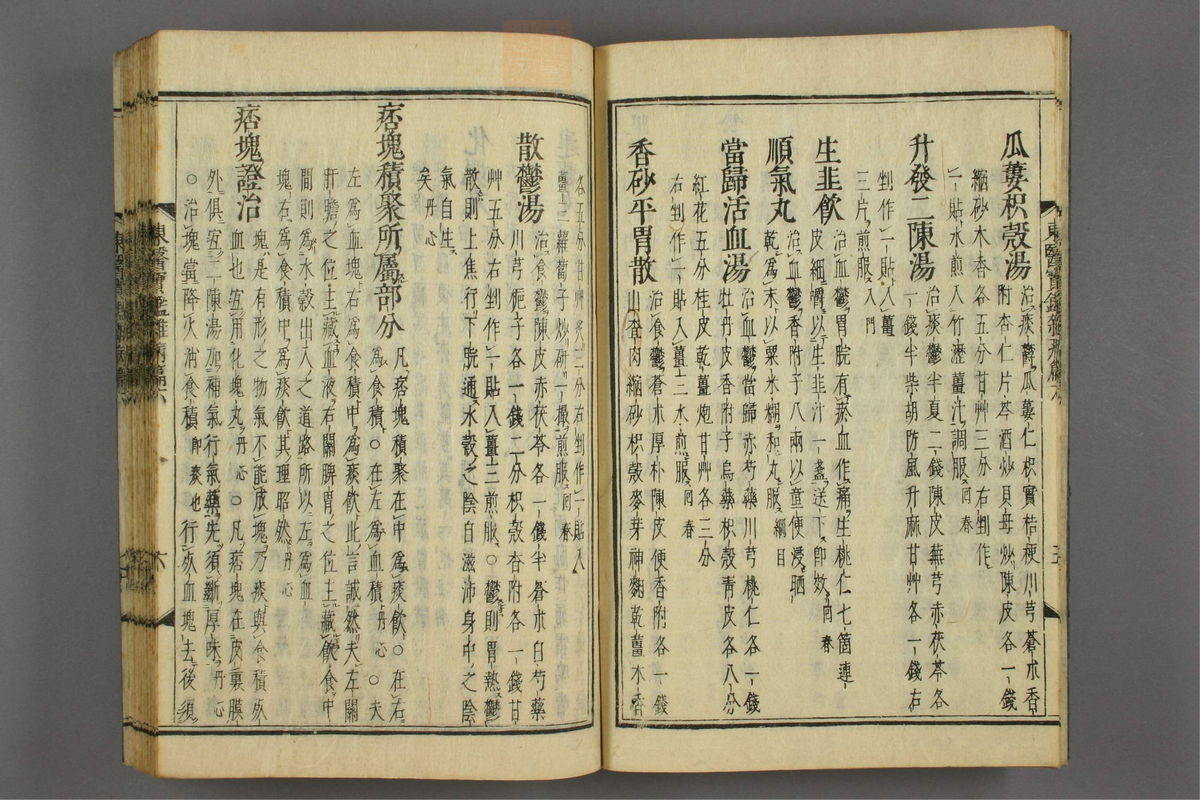 瓜蔞枳殼湯
治痰鬱瓜蔞仁枳實桔梗川芎蒼朮香
附杏仁片芩酒炒貝母炒陳皮各一錢
縮砂木香各五分甘艸三分右剉作
一貼水煎入竹瀝薑汁調服回春
升發二陳湯
治痰鬱半夏二錢陳皮蕪芎赤茯苓各
一錢半柴胡防風升麻甘艸各一錢右
剉作一貼入薑
三片煎服入門
生韭飮
治血鬱胃脘有菸血作痛生桃仁七箇連
皮細嚼以生韭汁一盞送下卽效回春
順氣丸
治血鬱香附子八兩以童便浸晒
乾爲末以粟米糊和丸服綱目
當歸活血湯
治血鬱當歸赤芍藥川芎桃仁各一錢
牡丹皮香附子烏藥枳殼靑皮各八分
紅花五分桂皮乾薑炮甘艸各三分
右剉作一貼入薑三水煎服回春
香砂平胃散
治食鬱蒼朮厚朴陳皮便香附各一錢
山査肉縮砂枳殼麥芽神麴乾薑木香
各五分甘艸炙三分右剉作一貼入
薑三蘿葍子炒硏一撮煎服回春
散鬱湯
治食鬱陳皮赤茯苓各一錢半蒼朮白芍藥
川芎梔子各一錢二分枳殼香附各一錢甘
艸五分右剉作一貼入薑三煎服○鬱則胃熱鬱
散則上焦行下脘通水穀之陰自滋沛身中之陰
氣自生
矣丹心
痞塊積聚所屬部分
凡痞塊積聚在中爲痰飮○在右
爲食積○在左爲血積丹心○夫
左爲血塊右爲食積中爲痰飮此言誠然夫左關
肝膽之位主藏血液右關脾胃之位主藏飮食中
間則水穀出入之道路所以左爲血
塊右爲食積中爲痰飮其理昭然丹心
痞塊證治
塊是有形之物氣不能成塊乃痰與食積死
血也宜用化塊丸丹心○凡痞塊在皮裏膜
外俱宜二陳湯加補氣行氣藥先須斷厚味丹心
○治塊當降火消食積卽痰也行死血塊去後須